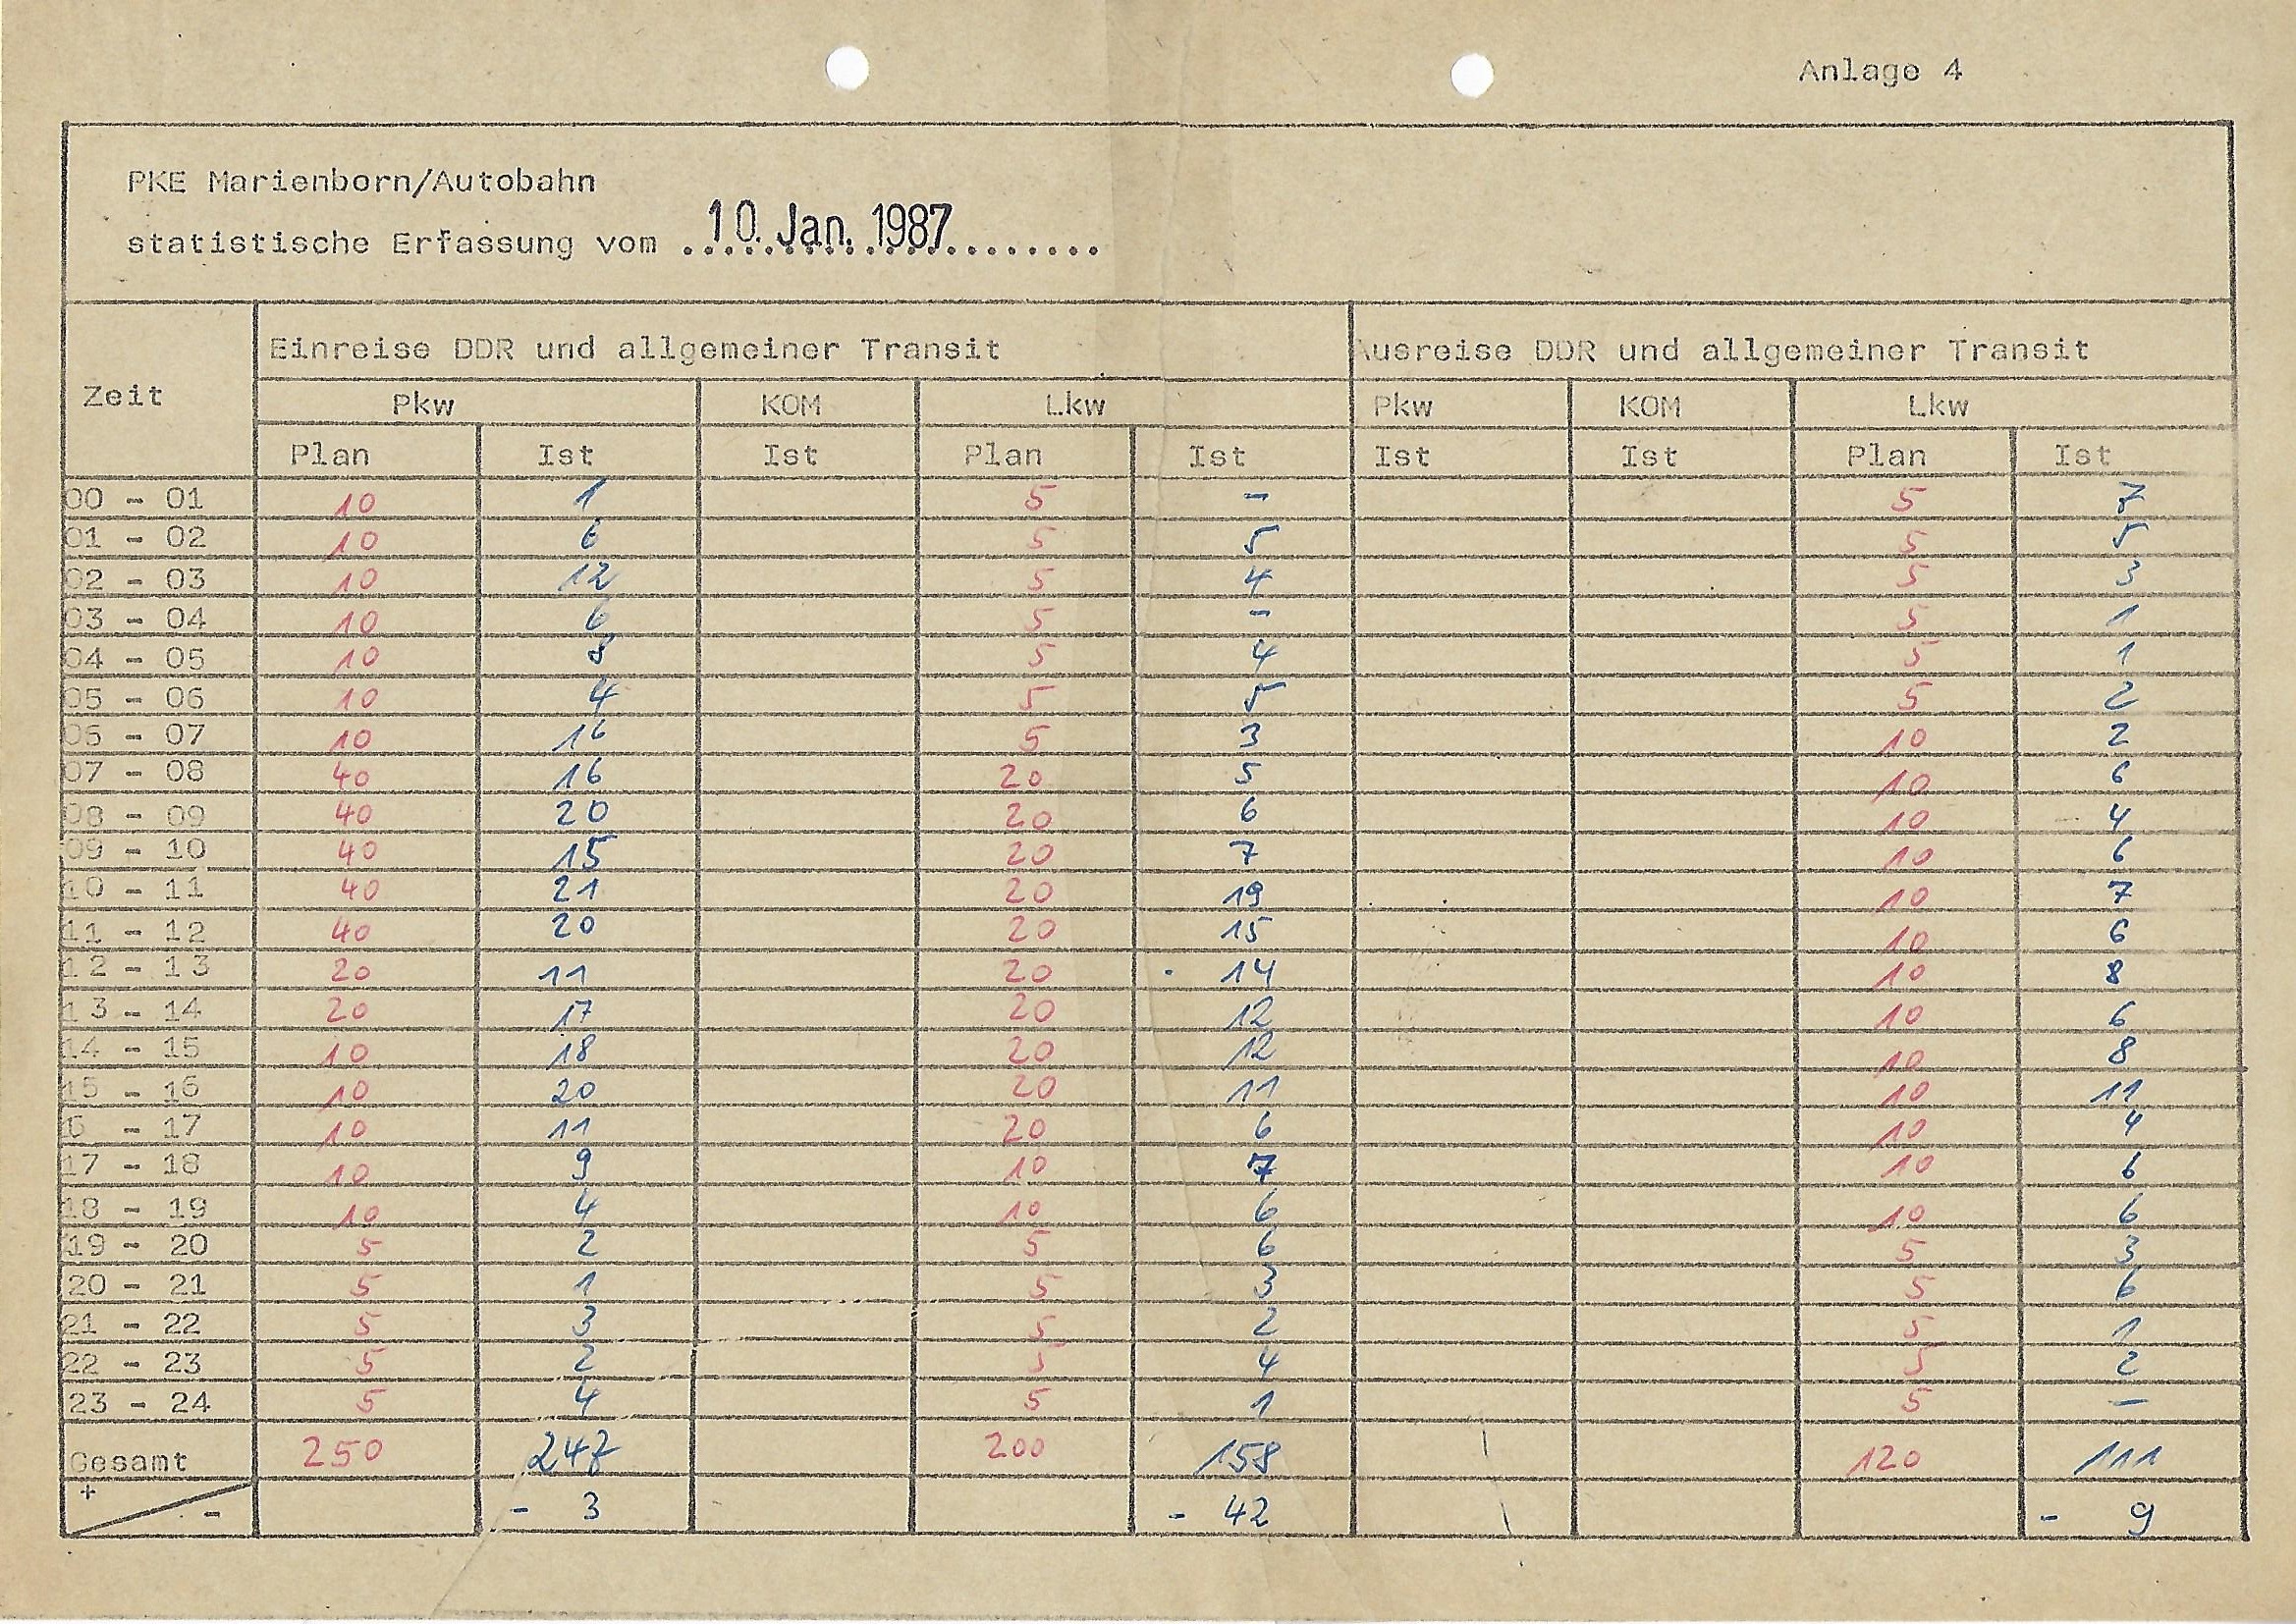 Anlage 4
PKE Marienborn/Autobahn
statistische Erfassung vom 10. Jan. 1987
Zeit Einreise DDR und allgemeiner Transit Ausreise DDR und allgemeiner Transit
Pkw KOM Lkw Pkw KOM Lkw
Plan Ist Ist Plan Ist Ist Ist Plan Ist
00 - 01 10 1 5 - 5 7
01 - 02 10 6 5 5 5 5
02 - 03 10 12 5 4 5 3
03 - 04 10 6 5 - 5 1
04 - 05 10 8 5 4 5 1
05 - 06 10 4 5 5 5 2
06 - 07 10 16 5 3 10 2
07 - 08 40 16 20 5 10 6
08 - 09 40 20 20 6 10 4
09 - 10 40 15 20 7 10 6
10 - 11 40 21 20 19 10 7
11 - 12 40 20 20 15 10 6
12 - 13 20 11 20 14 10 8
13 - 14 20 17 20 12 10 6
14 - 15 10 18 20 12 10 8
15 - 16 10 20 20 11 10 11
6 - 17 10 11 20 6 10 4
17 - 18 10 9 10 7 10 6
18 - 19 10 4 10 6 10 6
19 - 20 5 2 5 6 5 3
20 - 21 5 1 5 3 5 6
21 - 22 5 3 5 2 5 1
22 - 23 5 2 5 4 5 2
23 - 24 5 4 5 1 5 -
Gesamt 250 247 200 158 120 111
+ - - 3 - 42 - 9